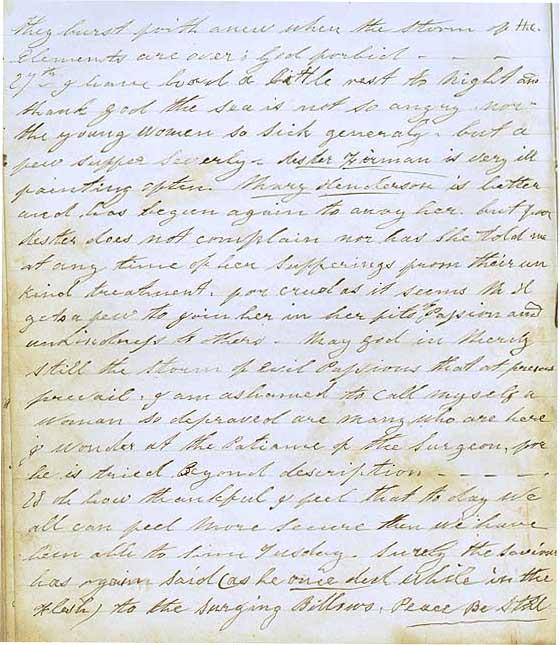 they burst forth anew when the storm of the
Elements are over: God forbid - - -
27th I have had a little rest to night and
thank god the sea is not so angry nor
the young women so sick generaly - but a
few suffer Severly - Hester Firman is very ill
fainting often. Mary Henderson is better
and has begun again to anoy her. but poor
Hester does not complain nor has she told me
at any time of her Sufferings from their un
kind treatment. for cruel as it seems M H
gets a few to join her in her fits of Passion and
unkindness to others - May god in Mercy
still the storm of Evil Passions that at present
prevail. I am ashamed to call myself a
Woman so depraved are Many who are here
I wonder at the Patiance of the Surgeon, for
he is tried Beyond description - - - -
28 oh how thankful I feel that to day We
all can feel More Secure then we have
been able to since Tuesday. Surely the Saviour
has again said (as he once did while in the
flesh) to the Surging Billows, Peace Be Still